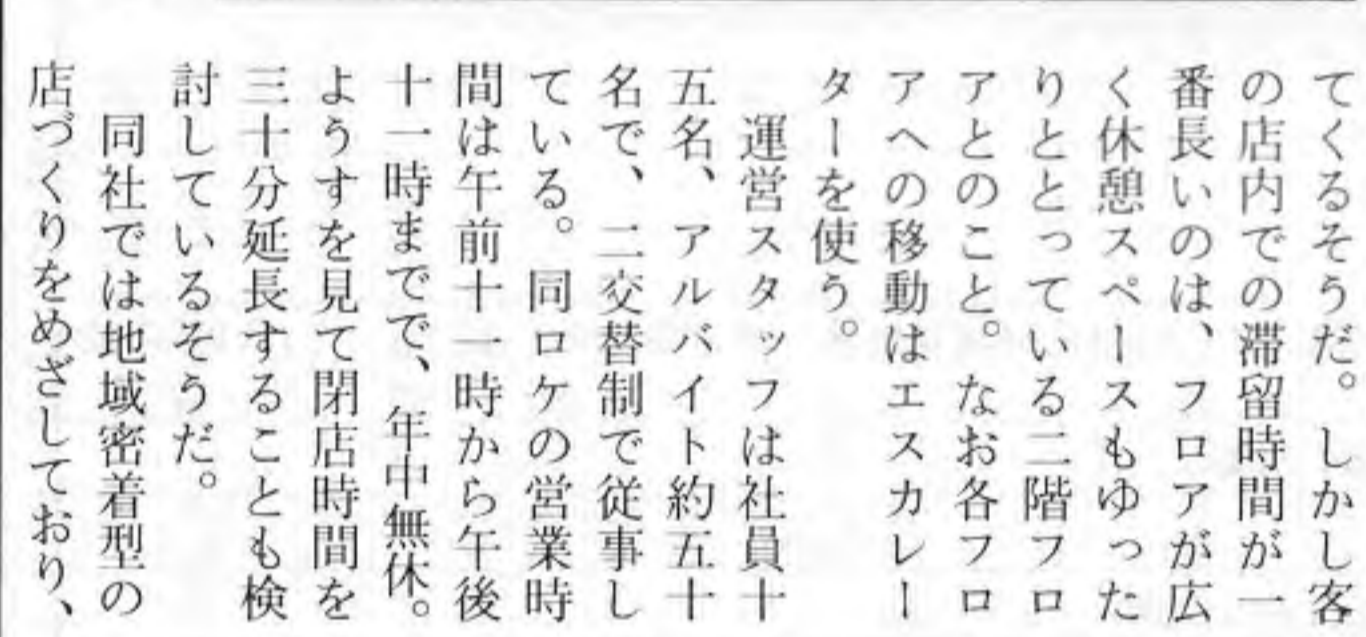 てくるそうだ。しかし客
の店内での滞留時間が一
番長いのは、フロアが広
く休憩スペースもゆった
りととっている二階フロ
アとのこと。なお各フロ
アへの移動はエスカレー
ターを使う。
運営スタッフは社員十
五名、アルバイト約五十
名で、二交替制で従事し
ている。同ロケの営業時
間は午前十一時から午後
十一時までで、年中無休。
ようすを見て閉店時間を
三十分延長することも検
討しているそうだ。
同社では地域密着型の
店づくりをめざしており、